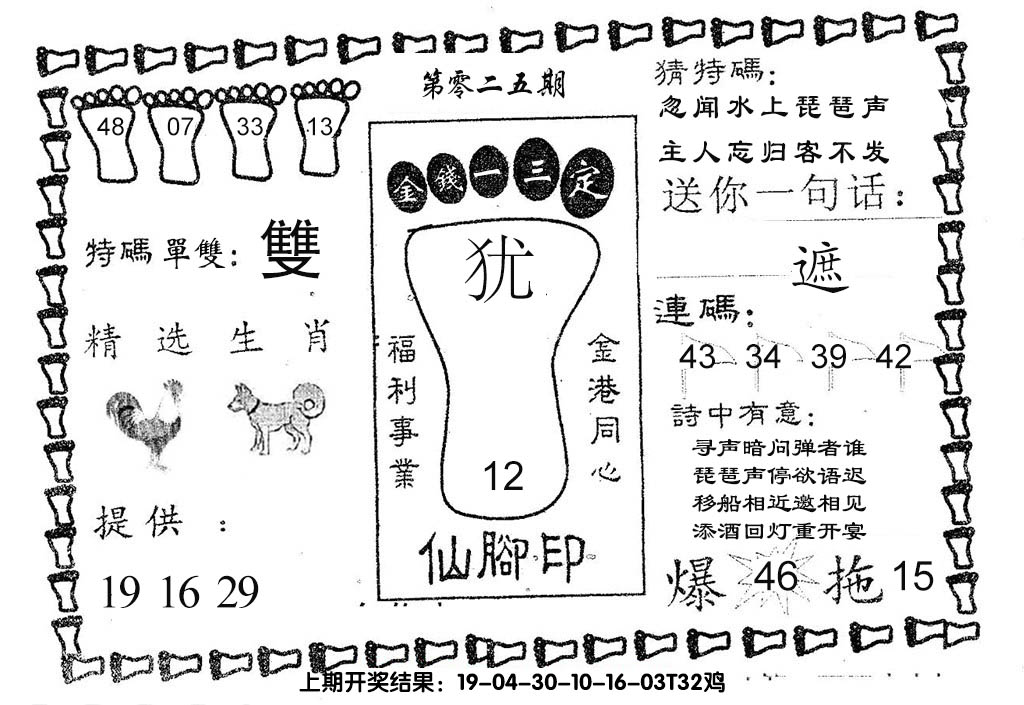 第零二五期
48 07 33 13
特碼單雙：雙
精选生肖
提供：
19 16 29
金錢一三定
犹
福利事業
金港同心
12
仙腳印
猜特碼：
忽闻水上琵琶声
主人忘归客不发
送你一句话：
遮
連碼：
43 34 39 42
詩中有意：
寻声暗问弹者谁
琵琶声停欲语迟
移船相近邀相见
添酒回灯重开宴
爆 46 拖 15
上期开奖结果：19-04-30-10-16-03T32鸡